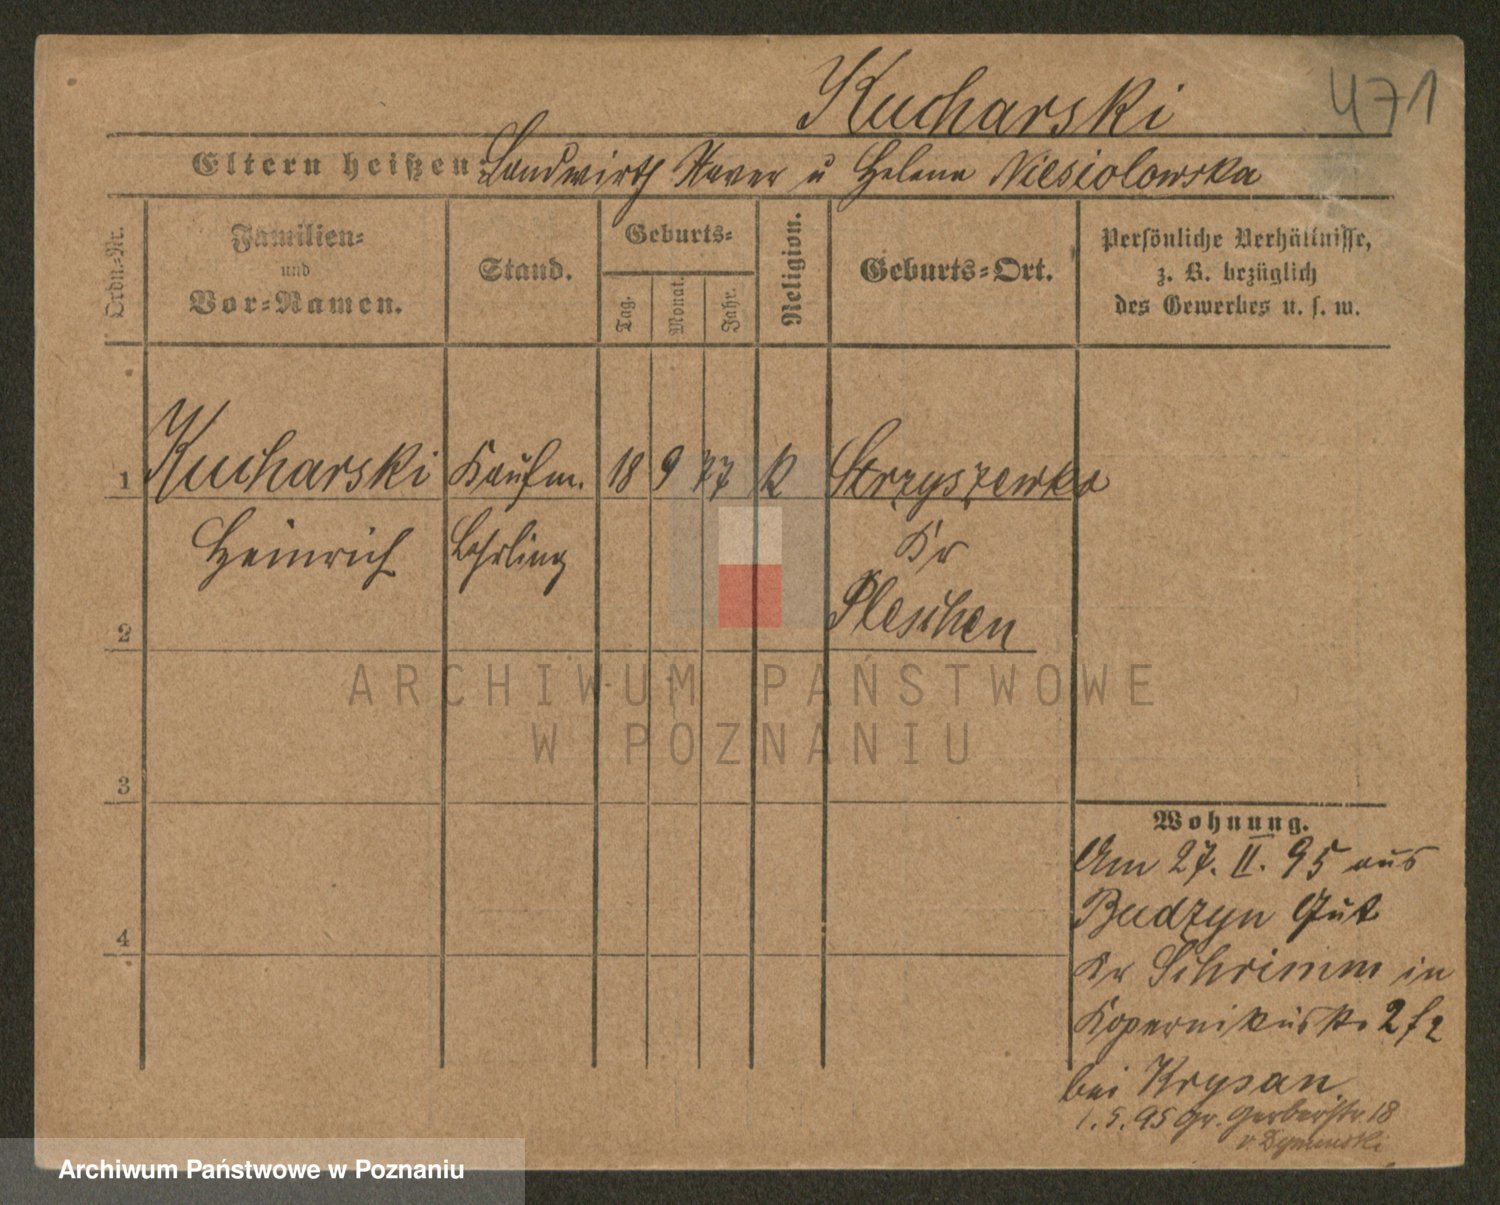 Kucharski
471
Eltern heißen: Landwirth Xaver u Helena Niesiolowska
Ordn.-Nr.
Familien-
und
Vor-Namen.
Stand.
Geburts-
Tag.
Monat.
Jahr.
Religion.
Geburts-Ort.
Persönliche Verhältnisse,
z. B. bezüglich
des Gewerbes u. s. w.
1 Kucharski Kaufm. 18 9 77 k Strzyszewko
Heinrich Lehrling Kr
Pleschen
2
3
4
Wohnung.
Am 27. II. 95 aus
Budzyn Gut
Kr Schrimm in
Kopernikusstr. 2 f 2
bei Krysan
1. 5. 95 Gr. Gerberstr. 18
ARCHIWUM PAŃSTWOWE
W POZNANIU
Archiwum Państwowe w Poznaniu